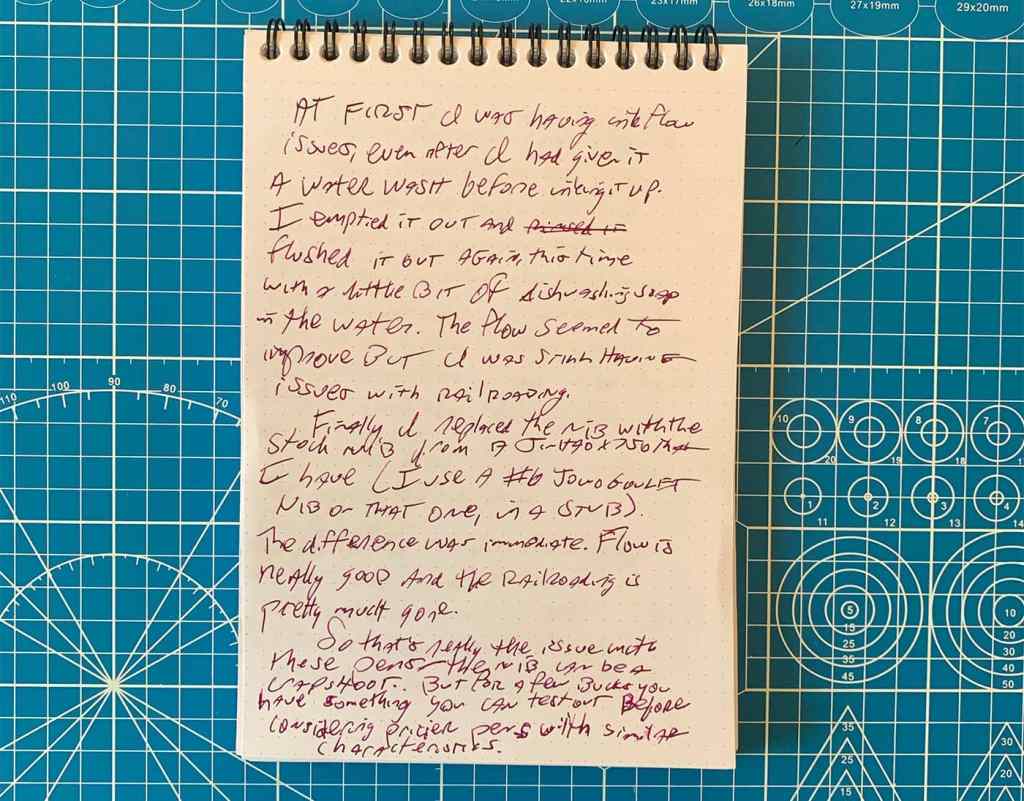 22x18mm
23x17mm
26x18mm
27x19mm
29x20mm
AT FIRST I was having ink flow
issues, even after I had given it
A WATER WASH before inking it up.
I emptied it OUT And rinsed it
flushed it OUT AGAIN, this time
with a little BIT OF dishwashing soap
in the WATER. The flow seemed to
improve BUT I was still HAVING
issues with RAILROADING.
Finally I replaced the NIB with the
stock NIB from A Jinhao X750 that
I have (I USE A #6 JOWO GOULET
NIB on THAT ONE, in A STUB).
The difference was immediate. Flow is
really good And the RAILROADing is
pretty much gone.
So that's really the issue with
these pens: the NIB can be a
CRAPSHOOT. But for a few Bucks you
have something you can test out Before
considering pricier pens with similar
characteristics.
110
100
90
80
70
10
9
8
7
20
19
18
17
1
2
3
4
11
12
13
14
5
15
25
35
45
10
20
30
40
50
35
25
15
30
20